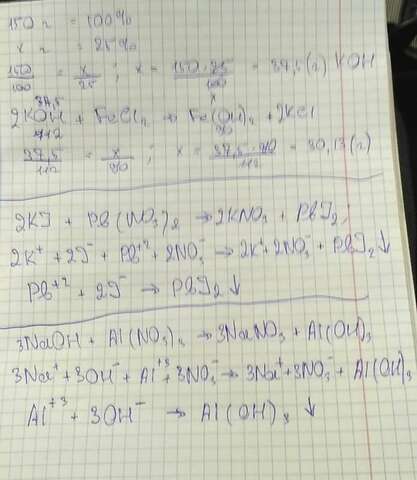 150 г = 100%
x г = 25%
150/100 = x/25 ; x = 150·25/100 = 37,5 (г) KOH
37,5 x
2KOH + FeCl₂ → Fe(OH)₂ + 2KCl
112 90
37,5/112 = x/90 ; x = 37,5·90/112 = 30,13 (г)
2KJ + Pb(NO₃)₂ → 2KNO₃ + PbJ₂↓
2K⁺ + 2J⁻ + Pb⁺² + 2NO₃⁻ → 2K⁺ + 2NO₃⁻ + PbJ₂↓
Pb⁺² + 2J⁻ → PbJ₂↓
3NaOH + Al(NO₃)₃ → 3NaNO₃ + Al(OH)₃
3Na⁺ + 3OH⁻ + Al⁺³ + 3NO₃⁻ → 3Na⁺ + 3NO₃⁻ + Al(OH)₃
Al⁺³ + 3OH⁻ → Al(OH)₃↓